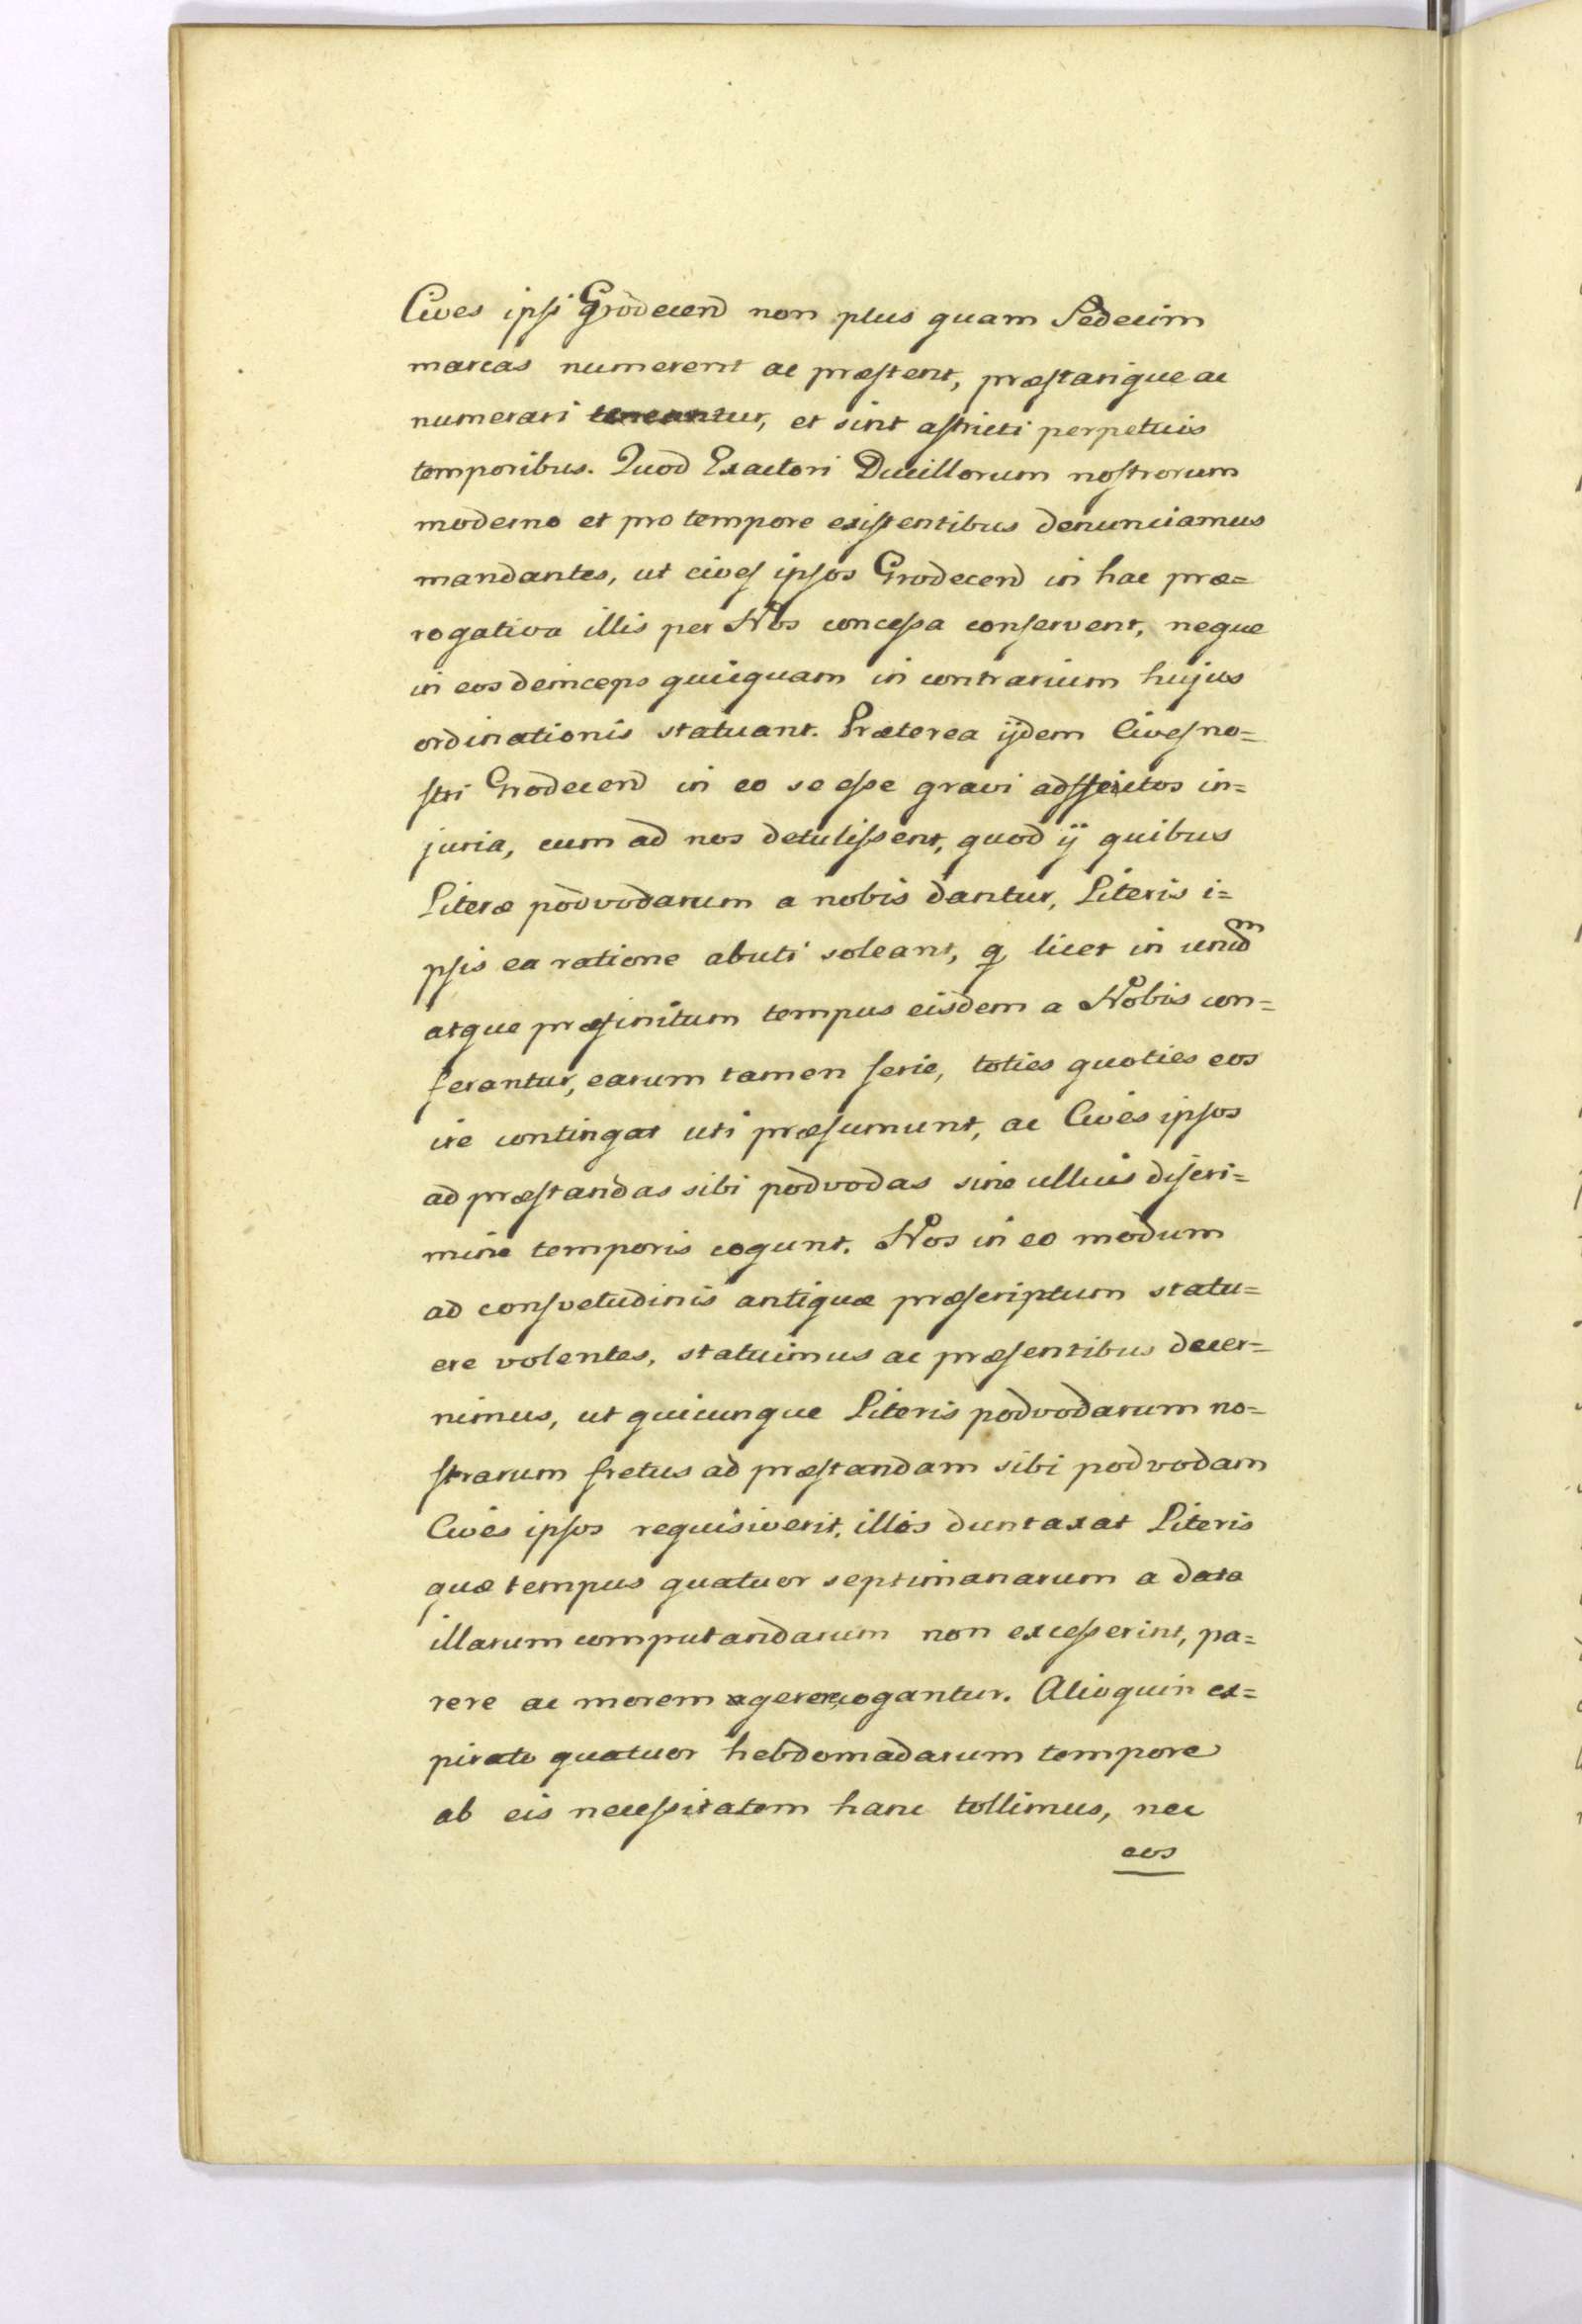 Cives ipsi Grodecend non plus quam Sedecim
marcas numerent ac præstent, præstarique ac
numerari teneantur, et sint astricti perpetuis
temporibus. Quod Exactori Ducillorum nostrorum
moderno et pro tempore existentibus denunciamus
mandantes, ut cives ipsos Grodecend in hac præ=
rogativa illis per Nos concessa conservent, neque
in eos deinceps quicquam in contrarium hujus
ordinationis statuant. Præterea ijdem Cives no=
stri Grodecend in eo se esse gravi adstrictos in=
juria, cum ad nos detulissent, quod ij quibus
Literæ podvodarum a nobis dantur, Literis i=
psis ea ratione abuti soleant, q licet in unum
atque præfinitum tempus eisdem a Nobis con=
ferantur, earum tamen serie, toties quoties eos
ire contingat uti præsumunt, ac Cives ipsos
ad præstandas sibi podvodas sine ullius discri=
mine temporis cogunt. Nos in eo modum
ad consvetudinis antiquæ præscriptum statu=
ere volentes, statuimus ac præsentibus decer=
nimus, ut quicunque Literis podvodarum no=
strarum fretus ad præstandam sibi podvodam
Cives ipsos requisiverit, illis duntaxat Literis
quæ tempus quatuor septimanarum a data
illarum computandarum non excesserint, pa=
rere ac morem gerere cogantur. Alioquin ex=
pirato quatuor hebdomadarum tempore
ab eis necessitatem hanc tollimus, nec
eos